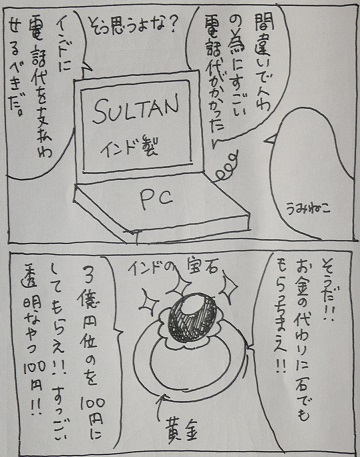 間違いでんわ
の為にすごい
電話代がかかった
うみねこ
そう思うよな?
SULTAN
インド製
PC
インドに
電話代を支払わ
せるべきだ。
そうだ!!
お金の代わりに石でも
もらっちまえ!!
インドの宝石
黄金
3億円位のを100円に
してもらえ!!すっごい
透明なやつ100円!!